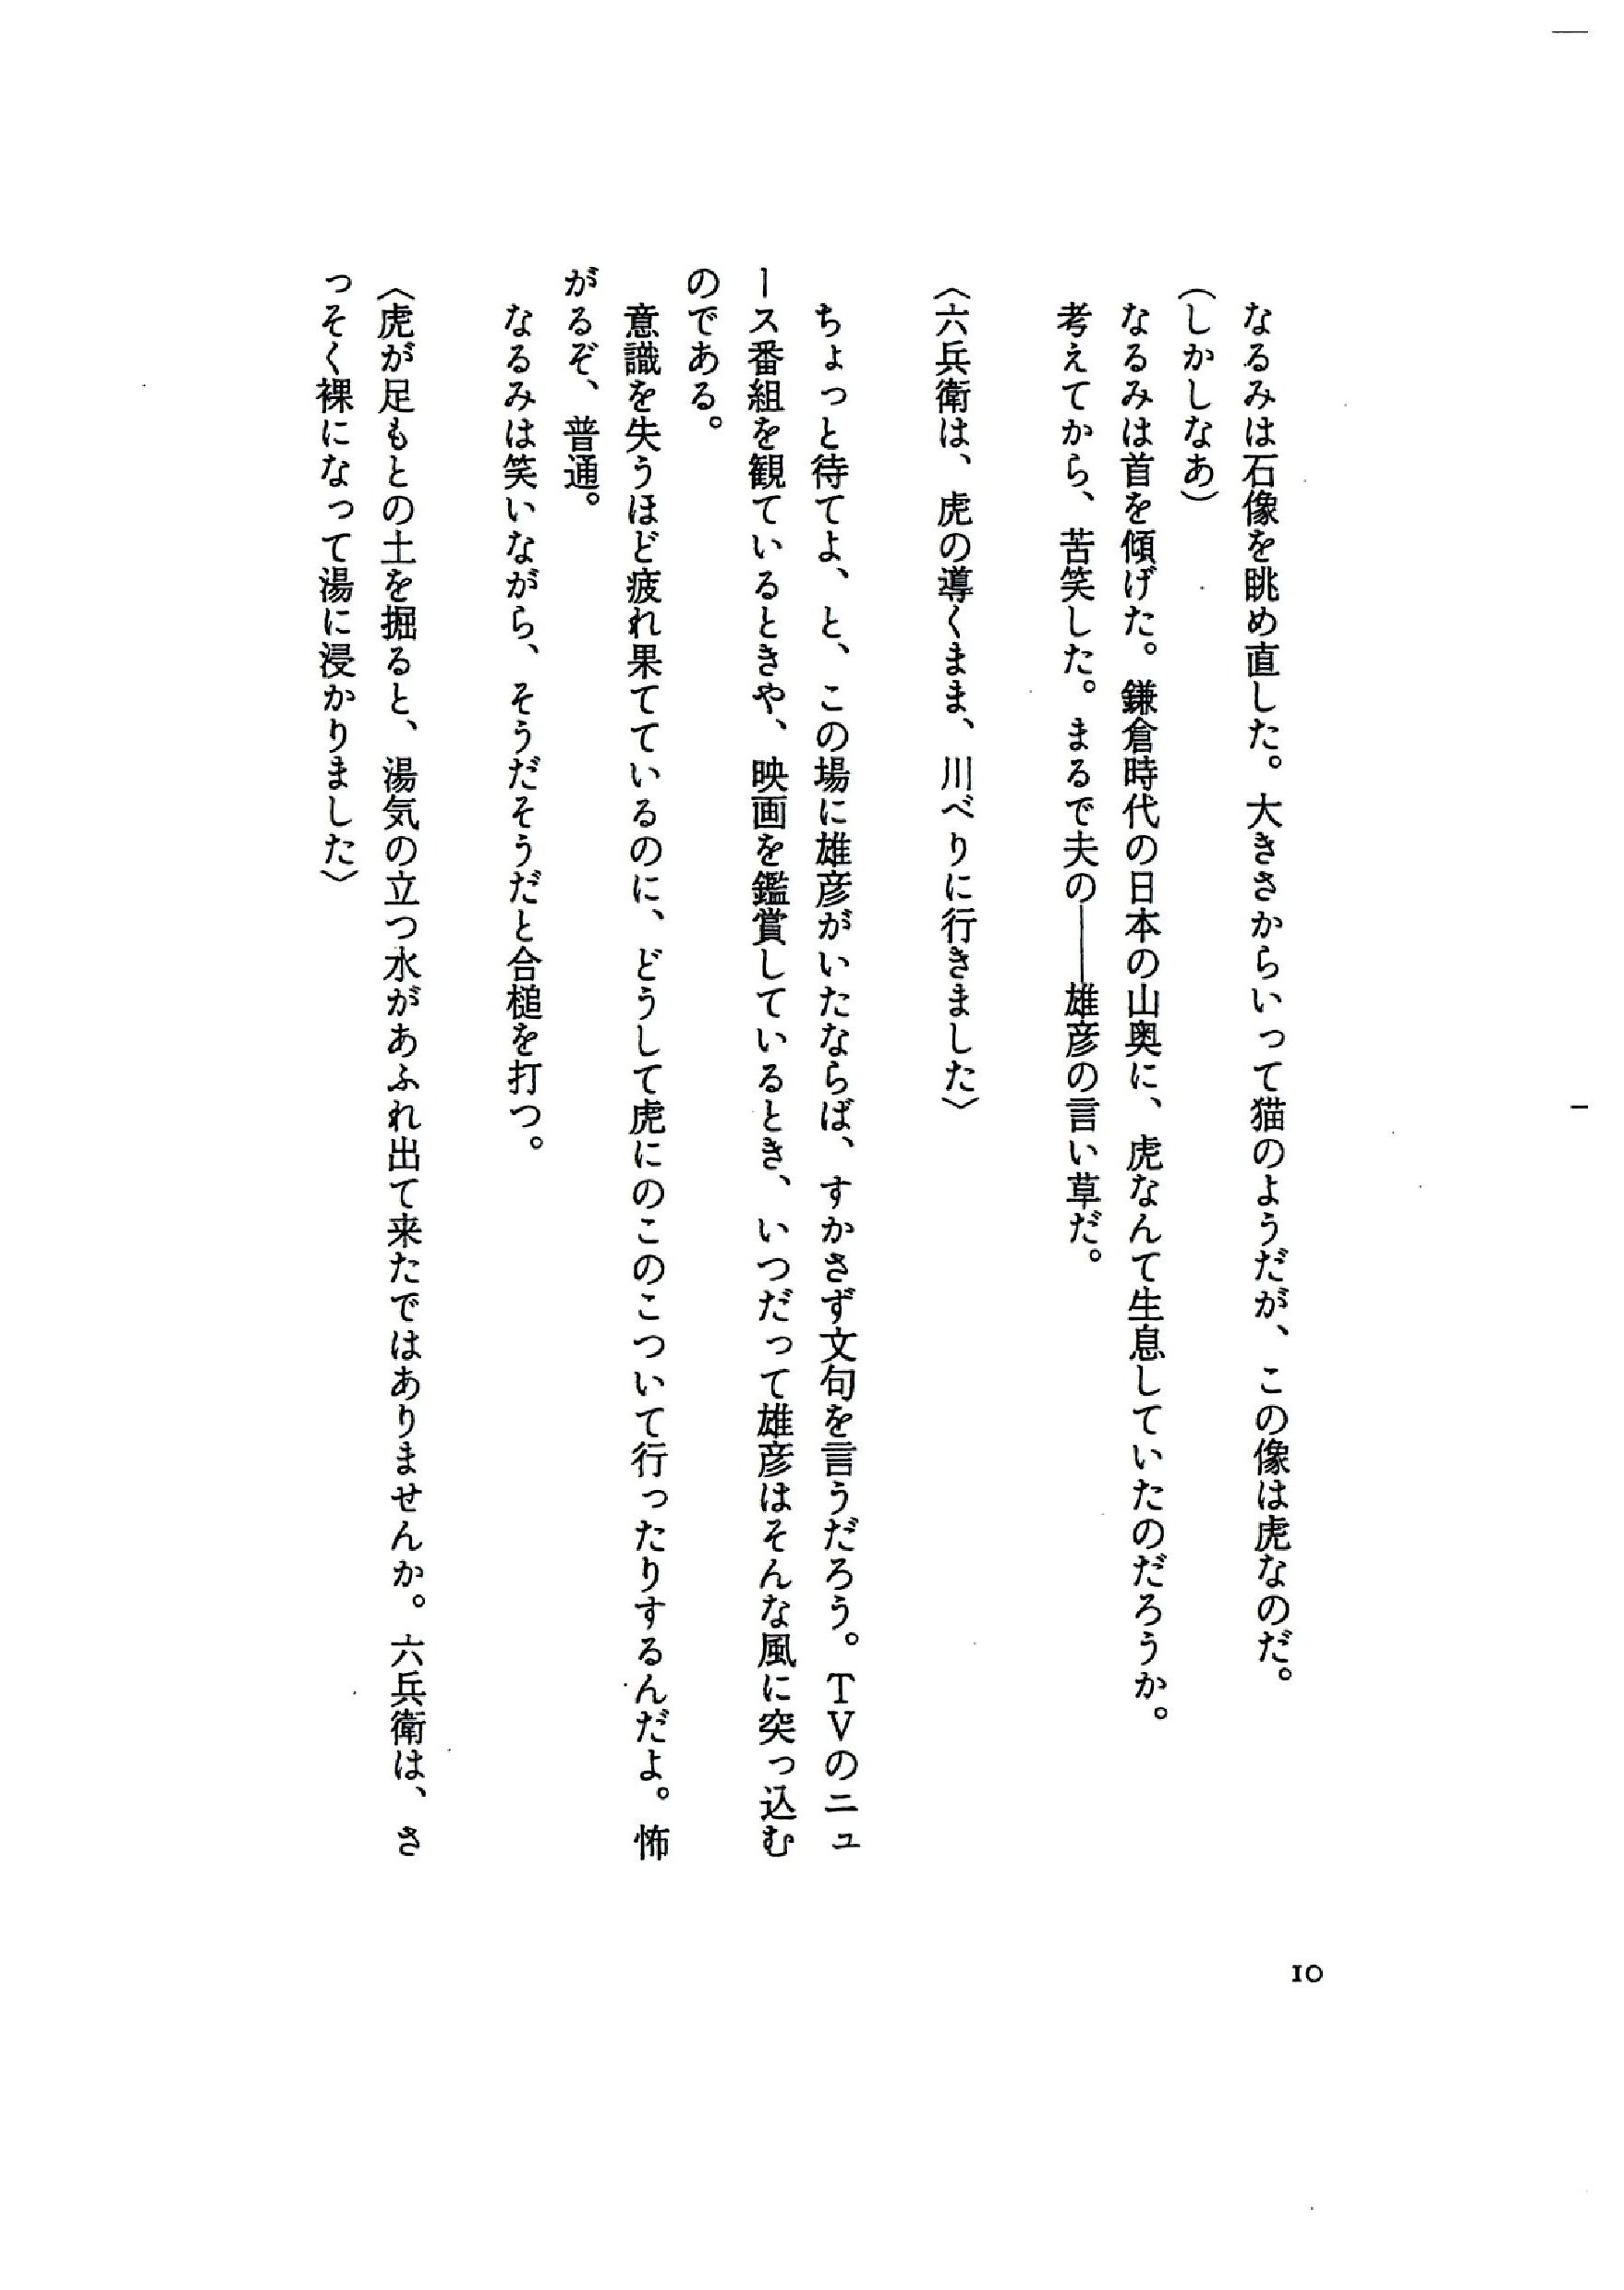 なるみは石像を眺め直した。大きさからいって猫のようだが、この像は虎なのだ。
（しかしなあ）
なるみは首を傾げた。鎌倉時代の日本の山奥に、虎なんて生息していたのだろうか。
考えてから、苦笑した。まるで夫の――雄彦の言い草だ。
〈六兵衛は、虎の導くまま、川べりに行きました〉
ちょっと待てよ、と、この場に雄彦がいたならば、すかさず文句を言うだろう。ＴＶのニュ
ース番組を観ているときや、映画を鑑賞しているとき、いつだって雄彦はそんな風に突っ込む
のである。
意識を失うほど疲れ果てているのに、どうして虎にのこのこついて行ったりするんだよ。怖
がるぞ、普通。
なるみは笑いながら、そうだそうだと合槌を打つ。
〈虎が足もとの土を掘ると、湯気の立つ水があふれ出て来たではありませんか。六兵衛は、さ
っそく裸になって湯に浸かりました〉
10